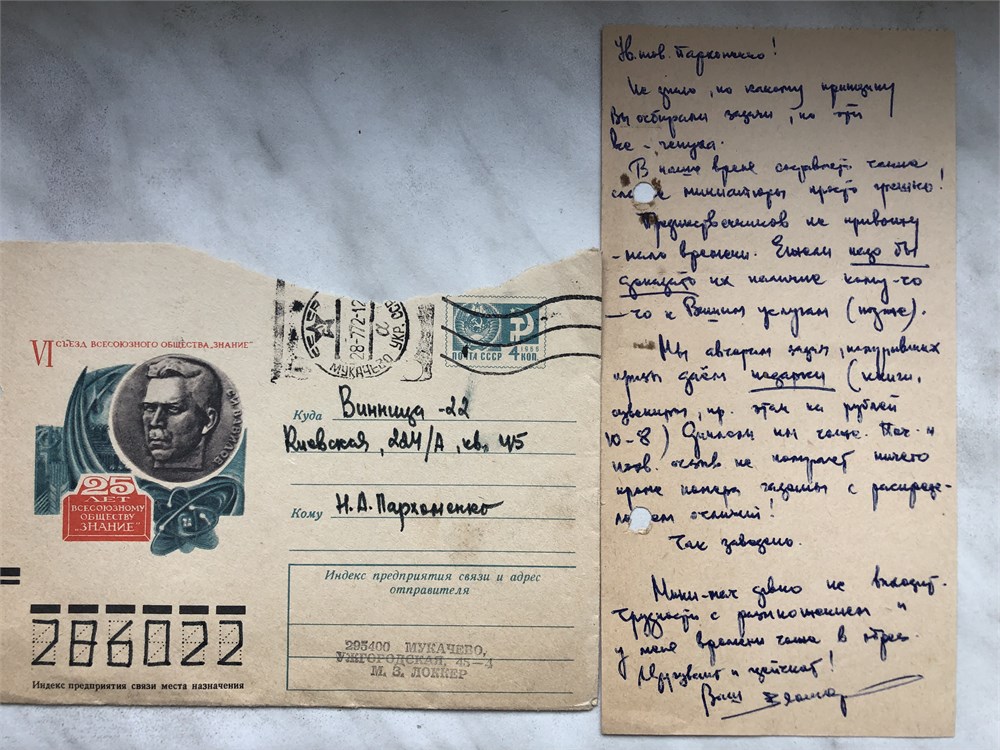 VI СЪЕЗД ВСЕСОЮЗНОГО ОБЩЕСТВА „ЗНАНИЕ"
С.И. ВАВИЛОВ
25
ЛЕТ
ВСЕСОЮЗНОМУ
ОБЩЕСТВУ
„ЗНАНИЕ"
28-772-12
МУКАЧЕВО УКР.
1966
ПОЧТА СССР 4 КОП.
Куда Винница-22
Киевская, 224/А, кв. 45
Кому Н.А. Пархоменко
Индекс предприятия связи и адрес
отправителя
295400 МУКАЧЕВО,
УЖГОРОДСКАЯ, 45-4
М. З. ЛОККЕР
286022
Индекс предприятия связи места назначения
Ув. тов. Пархоменко!
Не знаю, по какому принципу
Вы отбирали задачи, но эти
все - чепуха.
В наше время составлять такие
миниатюры просто грешно!
Предшественников не привожу
- мало времени. Ежели надо бы
доказать их наличие кому-то
- то к Вашим услугам (позже).
Мы авторам задач, получивших
призы даём подарки (книги,
сувениры, пр. этак на рублей
10-8) Дипломы им тоже. Поч. и
похв. отзыв не получает ничего
кроме номера газеты с распреде-
лением отличий!
Так заведено.
давно не выходит.
Трудности с и
у меня времени тоже в обрез.
и !
Ваш